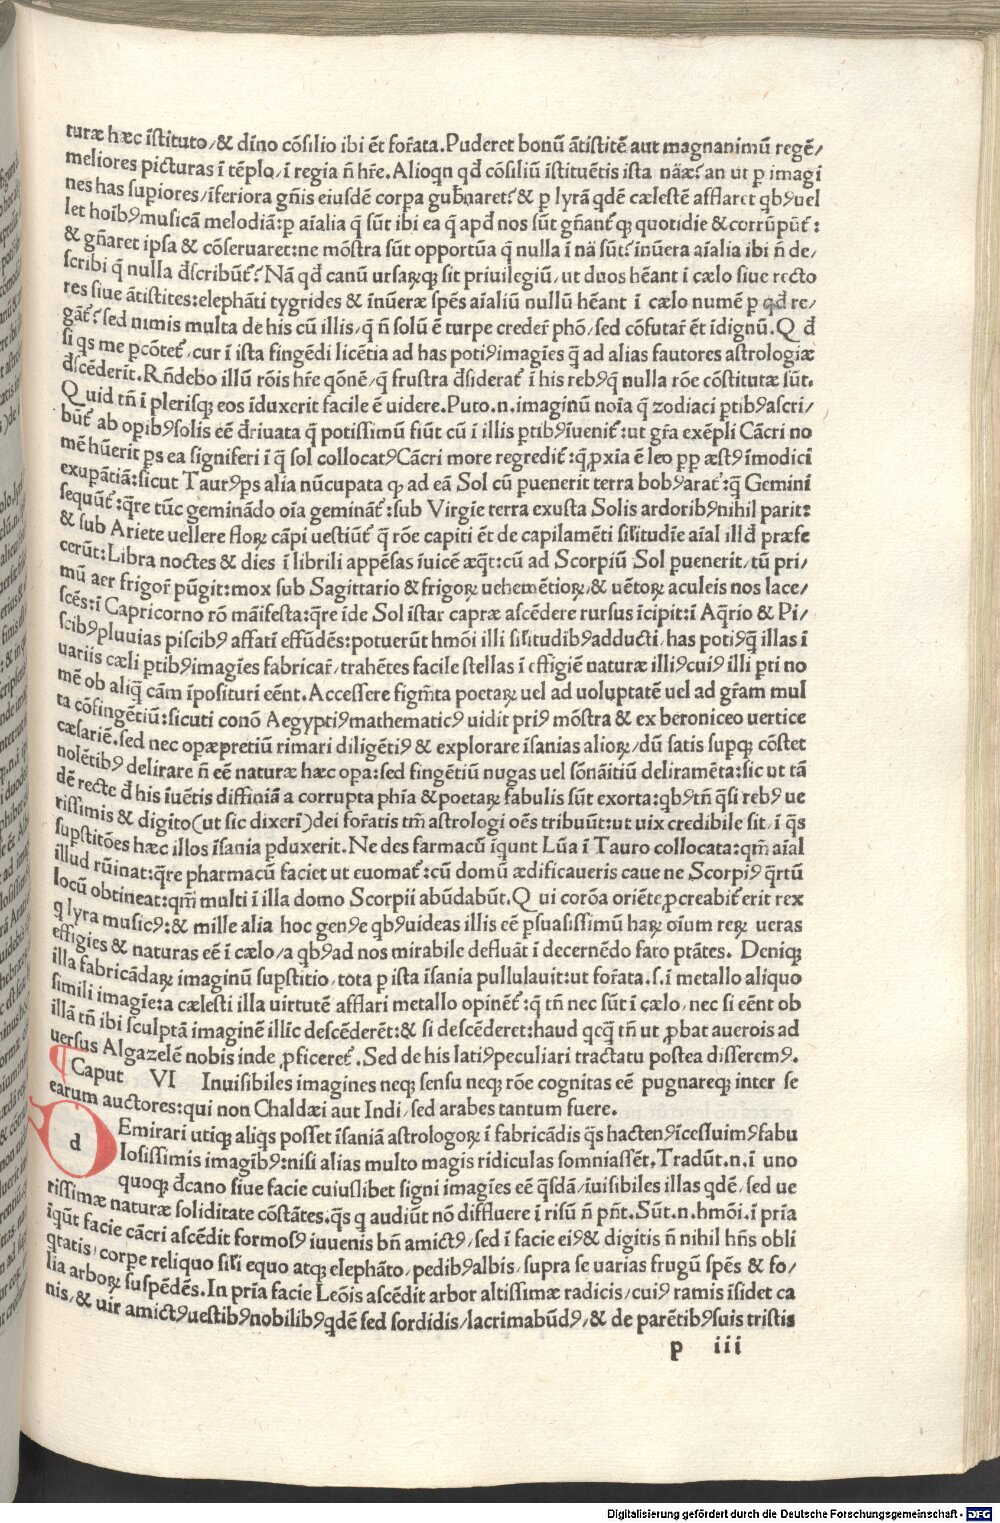 turæ hæc ĩstituto/& dĩno cõsilio ibi ẽt for̃ata.Puderet bonũ ãtistitẽ aut magnanimũ regẽ/
meliores picturas ĩ tẽplo/ĩ regia ñ hr̃e.Alioqn qđ cõsiliũ ĩstituẽtis ista nãæ? an ut p imagi
nes has sup̃iores/ĩferiora gñis eiusdẽ corpa gub̃naret? & p lyrã qdẽ cælestẽ afflaret qbꝰuel
let hoĩbꝰmusicã melodiã:p aĩalia q̃ sũt ibi ea q̃ apđ nos sũt gñant᷑ꝙ quotidie & corrũpũt᷑:
& gñaret ipsa & cõseruaret:ne mõstra sũt opportũa q̃ nulla ĩ nã sũt? inũera aĩalia ibi ñ de/
scribi q̃ nulla đscribũt᷑? Nã qđ canũ ursaꝝꝙ sit priuilegiũ/ut duos hẽant ĩ cælo siue recto
res siue ãtistites:elephãti tygrides & inũeræ sp̃es aĩaliũ nullũ hẽant ĩ cælo numẽ p qđ re/
gãt᷑? sed nimis multa de his cũ illis/q̃ ñ solũ ẽ turpe creder̃ ph̃o/sed cõfutar̃ ẽt ĩdignũ.Q đ
si qs me p̱cõtet᷑/cur ĩ ista fingẽdi licẽtia ad has potiꝰimagĩes q̃ ad alias fautores astrologiæ
đscẽderĩt.Rñdebo illũ rõis hr̃e qõnẽ/q̃ frustra đsiderat᷑ ĩ his rebꝰq̃ nulla rõe cõstitutæ sũt.
Quid tñ ĩ plerisꝙ eos ĩduxerit facile ẽ uidere.Puto.n.imaginũ noĩa q̃ zodiaci p̱tibꝰascri/
bũt᷑ ab op̱ibꝰsolis eẽ đriuata q̃ potissimũ fiũt cũ ĩ illis p̱tibꝰĩuenit᷑:ut gr̃a exẽpli Cãcri no
mẽ hũerit p̱s ea signiferi ĩ q̃ sol collocatꝰCãcri more regredit᷑:q̃ꝓxĩa ẽ leo p̱p æstꝰĩmodici
exup̱ãtiã:sicut Taurꝰp̱s alia nũcupata ꝙ ad eã Sol cũ puenerit terra bobꝰarat᷑:q̃ Gemini
sequũt᷑:q̃re tũc geminãdo oĩa geminãt᷑:sub Virgĩe terra exusta Solis ardoribꝰnihil parit:
& sub Ariete uellere floꝝ cãpi uestiũt᷑ q̃ rõe capiti ẽt de capilamẽti sil̃itudĩe aĩal illđ præfe
cerũt:Libra noctes & dies ĩ librili appẽsas ĩuicẽ æq̃t:cũ ad Scorpiũ Sol puenerit/tũ pri/
mũ aer frigor̃ pũgit:mox sub Sagittario & frigoꝝ uehemẽtioꝝ/& uẽtoꝝ aculeis nos lace/
scẽs:ĩ Capricorno rõ mãifesta:q̃re ĩde Sol ĩstar capræ ascẽdere rursus ĩcipit:ĩ Aq̃rio & Pi/
scibꝰpluuias piscibꝰ affatĩ effũdẽs:potuerũt hmõi illi sil̃itudĩbꝰadducti/has potiꝰq̃ illas ĩ
uariis cæli p̱tibꝰimagĩes fabricar̃/trahẽtes facile stellas ĩ effigiẽ naturæ illiꝰcuiꝰ illi p̱ti no
mẽ ob aliq̃ cãm ĩposituri eẽnt.Accessere figm̃ta poetaꝝ uel ad uoluptatẽ uel ad gr̃am mul
ta cõfingẽtiũ:sicuti conõ Aegyptiꝰmathematicꝰ uidit priꝰ mõstra & ex beroniceo uertice
cæsariẽ.sed nec opæpretiũ rimari diligẽtiꝰ & explorare ĩsanias alioꝝ/dũ satis sup̱ꝙ cõstet
nolẽtibꝰ delirare ñ eẽ naturæ hæc op̱a:sed fingẽtiũ nugas uel sõnãitiũ deliramẽta:sic ut tã
dẽ recte đ his ĩuẽtis diffiniã a corrupta phĩa & poetaꝝ fabulis sũt exorta:qbꝰtñ q̃si rebꝰ ue
rissimis & digito(ut sic dixerĩ)dei for̃atis tm̃ astrologi oẽs tribuũt:ut uix credibile sit/ĩ q̃s
sup̱stitões hæc illos ĩsania p̱duxerit.Ne des farmacũ ĩqunt Lũa ĩ Tauro collocata:qm̃ aĩal
illud rũinat:q̃re pharmacũ faciet ut euomat᷑:cũ domũ ædificaueris caue ne Scorpiꝰ q̃rtũ
locũ obtineat:qm̃ multi ĩ illa domo Scorpii abũdabũt.Qui corõa oriẽte ꝓcreabit᷑ erit rex
q̱ lyra musicꝰ:& mille alia hoc genꝰe qbꝰuideas illis eẽ p̱suasissimũ haꝝ oĩum reꝝ ueras
effigies & naturas eẽ ĩ cælo/a qbꝰad nos mirabile defluãt ĩ decernẽdo fato ptãtes. Deniꝙ
illa fabricãdaꝝ imaginũ sup̱stitio/tota p ista ĩsania pullulauit:ut for̃ata.s.ĩ metallo aliquo
simili imagĩe:a cælesti illa uirtutẽ afflari metallo opinẽt᷑:q̃ tñ nec sũt ĩ cælo/nec si eẽnt ob
illã tñ ibi sculptã imaginẽ illĩc descẽderẽt:& si descẽderet:haud qcq̃ tñ ut ꝓbat auerois ad
uersus Algazelẽ nobis inde ꝓficeret᷑. Sed de his latiꝰpeculiari tractatu postea disseremꝰ.
Caput VI Inuisibiles imagines neqꝫ sensu neqꝫ rõe cognitas eẽ pugnareqꝫ inter se
earum auctores:qui non Chaldæi aut Indi/sed arabes tantum fuere.
d Emirari utiqꝫ aliqs posset ĩsaniã astrologoꝝ ĩ fabricãdis q̃s hactenꝰĩcessuimꝰfabu
losissimis imagĩbꝰ:nisi alias multo magis ridiculas somniassẽt.Tradũt.n.ĩ uno
quoqꝫ đcano siue facie cuiuslibet signi imagĩes eẽ q̃sdã/ĩuisibiles illas qdẽ/sed ue
rissimæ naturæ soliditate cõstãtes.q̃s q audiũt nõ diffluere ĩ risũ ñ pñt.Sũt.n.hmõi.ĩ prĩa
ĩqũt facie cãcri ascẽdit formosꝰ iuuenis bñ amictꝰ/sed ĩ facie eiꝰ& digitis ñ nihil hñs obli
q̃tatis/corp̱e reliquo sil̃i equo atqꝫ elephãto/pedibꝰalbis/supra se uarias frugũ sp̃es & fo/
lia arboꝝ suspẽdẽs.In prĩa facie Leõis ascẽdit arbor altissimæ radicis/cuiꝰ ramis ĩsidet ca
nis/& uir amictꝰuestibꝰnobilibꝰqdẽ sed sordidis/lacrimabũdꝰ/& de parẽtibꝰsuis tristis
p iii
Digitalisierung gefördert durch die Deutsche Forschungsgemeinschaft - DFG